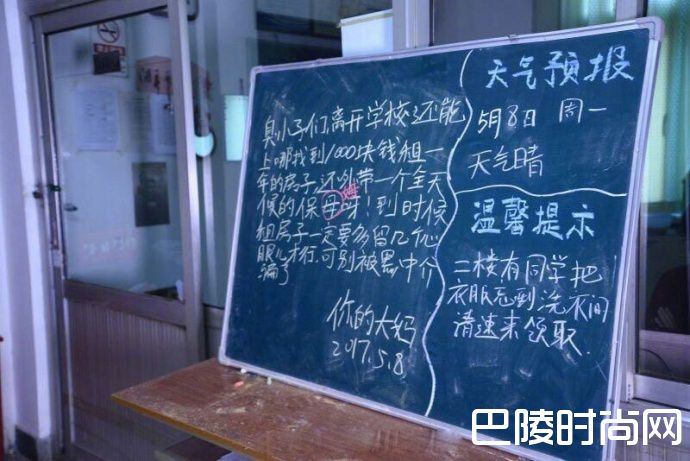 臭小子们离开学校还能
上哪找到1000块钱租一
年的房子,还外带一个全天
候的保母呀!到时候
姆
租房子一定要多留几个心
眼儿才行,可别被黑中介
骗了
你的大妈
2017.5.8
天气预报
5月8日 周一
天气晴
温馨提示
二楼有同学把
衣服忘到洗衣间
请速来领取.
巴陵时尚网